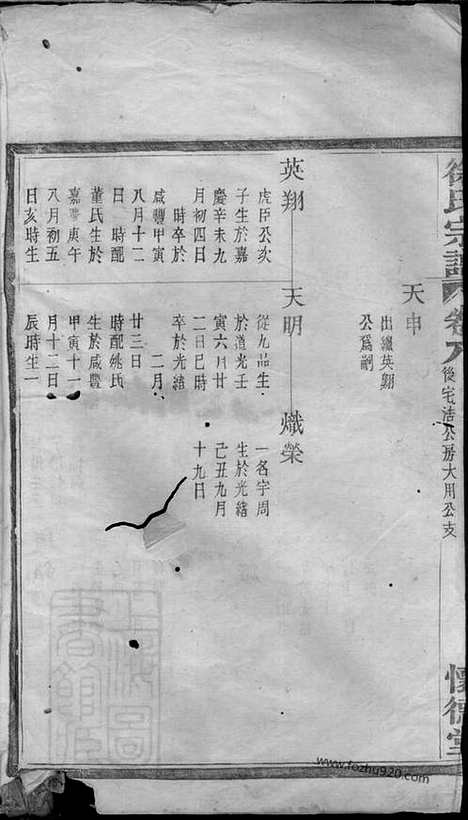 徐氏宗譜
卷八
後宅浩公房大用公支
懷德堂
天申
出繼英翔
公爲嗣
英翔
虎臣公次
子生於嘉
慶辛未九
月初四日
時卒於
咸豐甲寅
八月十二
日 時配
董氏生於
嘉慶庚午
八月初五
日亥時生
天明
從九品生
於道光壬
寅六月廿
二日巳時
卒於光緒
二月
廿三日
時配姚氏
生於咸豐
甲寅十一
月十二日
辰時生一
熾榮
一名宇周
生於光緒
己丑九月
十九日
上海圖
書館藏
www.fozhu920.com